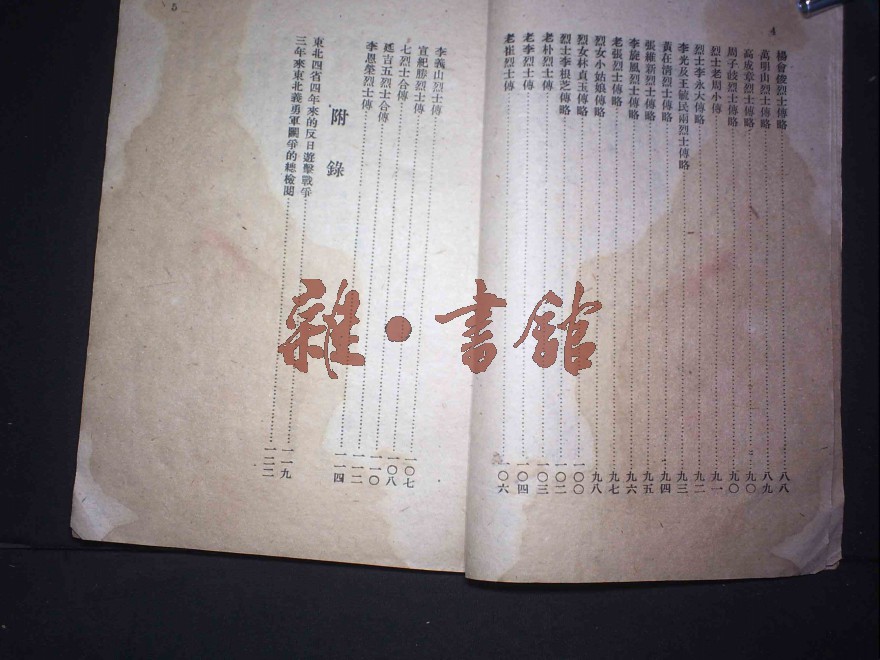 4
楊會俊烈士傳略……八八
萬明山烈士傳略……八九
高成章烈士傳略……九〇
周子歧烈士傳略……九〇
烈士老周小傳……九一
烈士李永大傳略……九二
李光及王毓民兩烈士傳略……九三
黃在清烈士傳略……九四
張維新烈士傳略……九五
李旋風烈士傳略……九六
老張烈士傳略……九七
烈女小姑娘傳略……九八
烈女林貞玉傳略……一〇〇
烈士李根芝傳略……一〇二
老朴烈士傳……一〇三
老李烈士傳……一〇四
老崔烈士傳……一〇六
5
李義山烈士傳……一〇七
宣紀勝烈士傳……一〇八
七烈士合傳……一一〇
延吉五烈士合傳……一一二
李恩榮烈士傳……一一四
附錄
東北四省四年來的反日遊擊戰爭……一一九
三年來東北義勇軍鬭爭的總檢閱……一二二
雜·書館